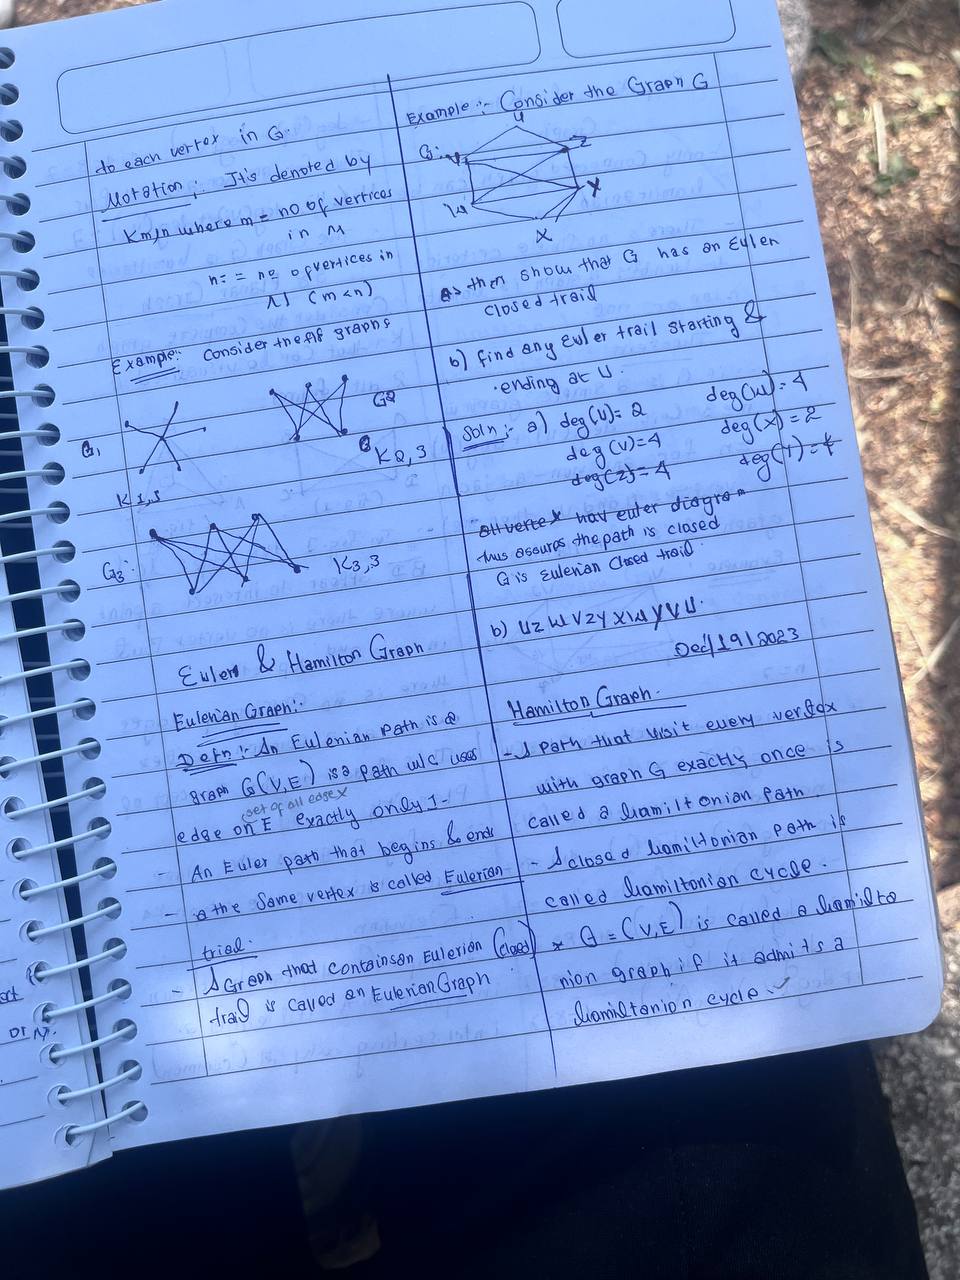 to each vertex in G.
Notation:- It's denoted by
Km,n where m = no of vertices
in M
n: = no of vertices in
N (m<n)
Example:- Consider the ff graphs
G1
K1,5
G2
K2,3
G3:
K3,3
Eulers & Hamilton Graph
Eulerian Graph:-
Defn:- An Eulerian Path is a
graph G(V,E) is a path w/c uses
set of all edges
edge on E exactly only 1-
- An Euler path that begins & ends
- @ the same vertex is called Eulerian
trial.
- A Graph that contains an Eulerian (closed)
trail is called an Eulerian Graph
Example:- Consider the Graph G
G:
U
V
Z
W
Y
X
a> then show that G has an Eulen
closed trail
b) find any Euler trail starting &
ending at U.
Soln:- a) deg(U)= 2 deg(W)= 4
deg(V)=4 deg(X)= 2
deg(Z)= 4 deg(Y)=4
all vertex hav euler diagram
thus assures the path is closed
G is Eulerian Closed trail.
b) UZWVZYXWYVU.
Dec/19/2023
Hamilton Graph.
- A path that visit every vertex
with graph G exactly once is
called a hamiltonian path
- A closed hamiltonian path is
called hamiltonian cycle.
* G = (V,E) is called a hamilto
nion graph if it admits a
hamiltanion cycle.
or N.